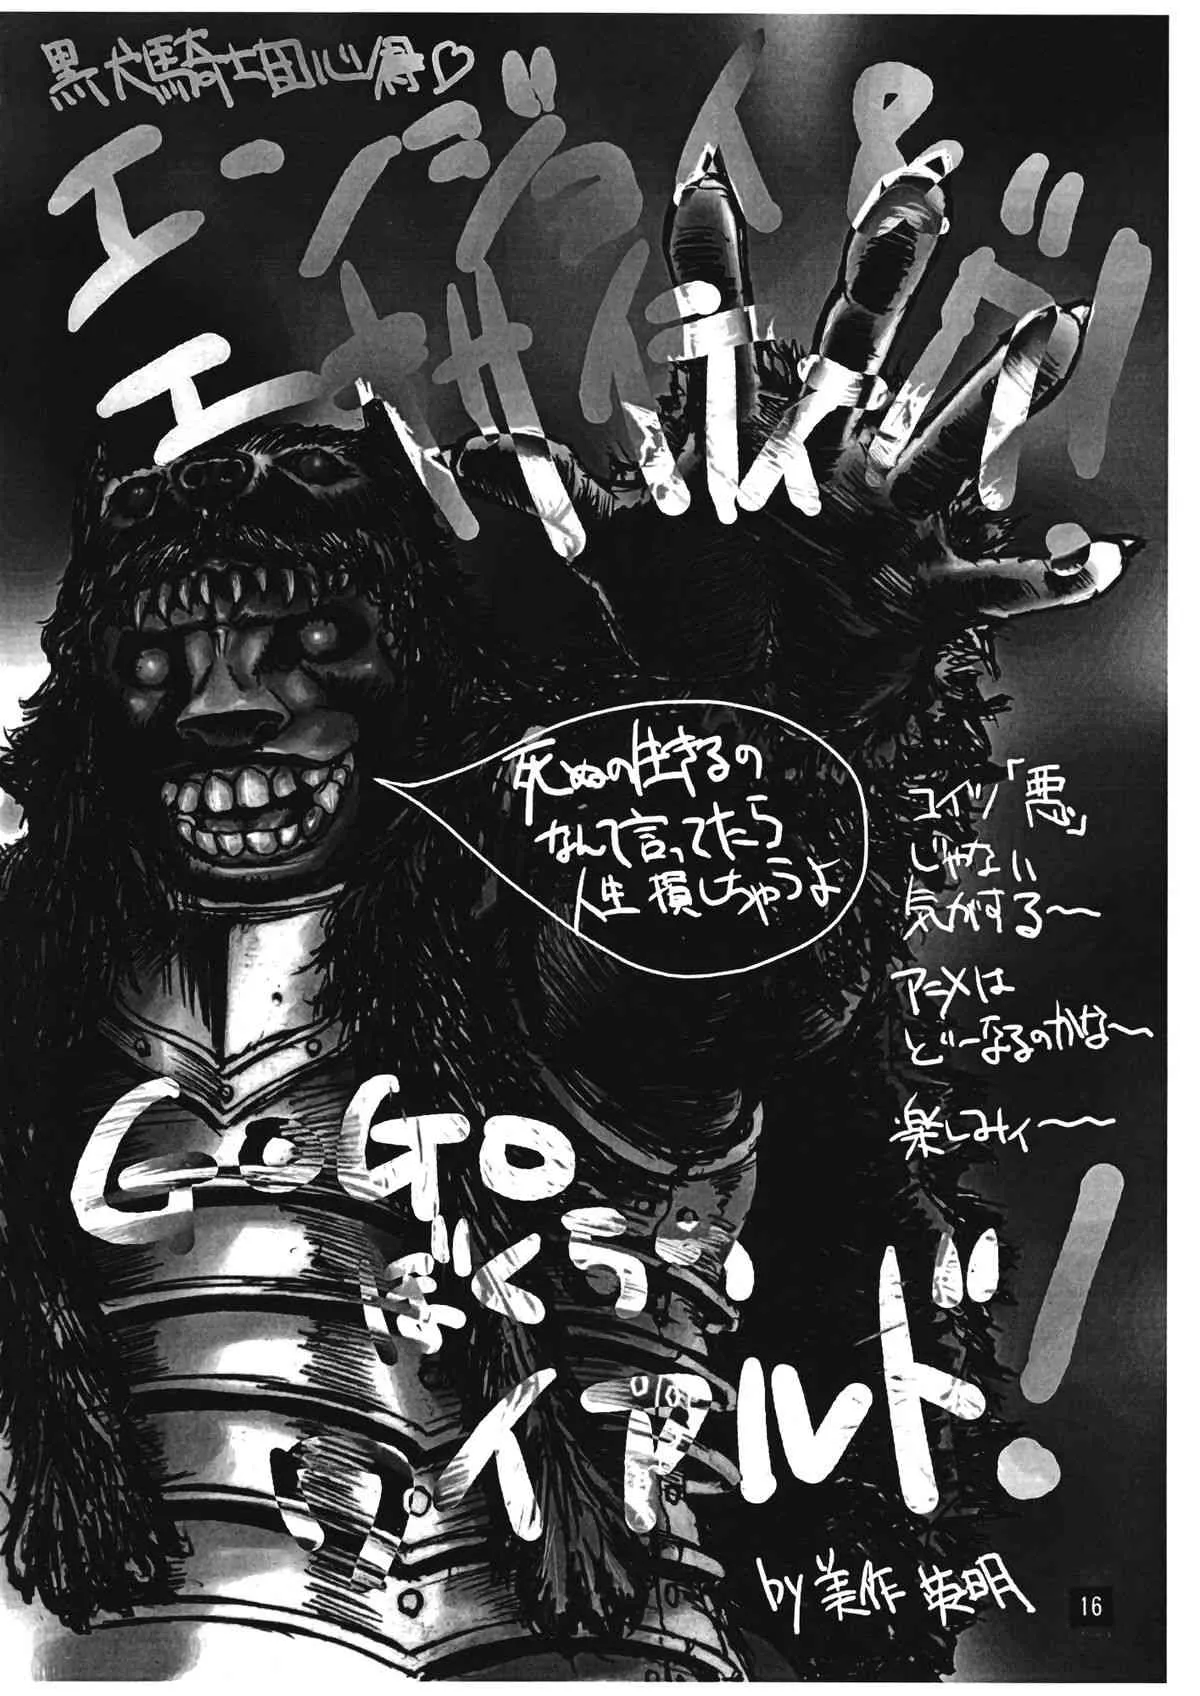 黒犬騎士団心得♡
エンジョイ&
エキサイティング!
死ぬの生きるの
なんて言ってたら
人生損しちゃうよ
コイツ「悪」
じゃない
気がする〜
アニメは
どーなるのかな〜
楽しみィ〜〜
GOGO
ぼくら、
ワイアルド!
by 美作 英明
16